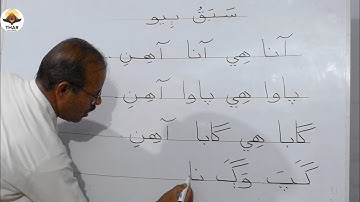 سَبَقُ ٻِيو
آنا هِي آنا آهِنِ
پاوا هِي پاوا آهِنِ
گابا هِي گابا آهِنِ
گَپَ وَگَ نا
THAR